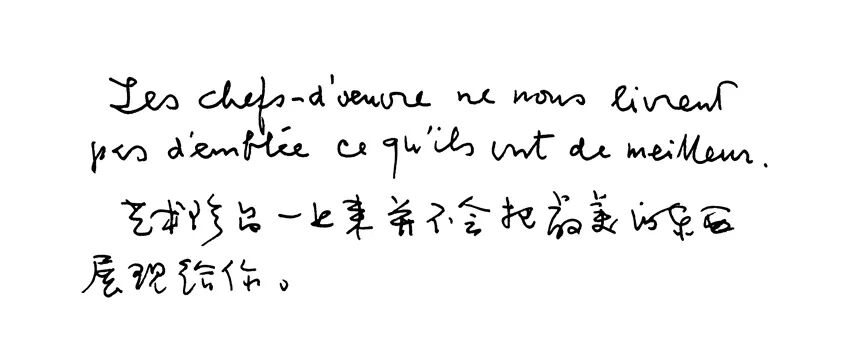 Les chefs-d'œuvre ne nous livrent
pas d'emblée ce qu'ils ont de meilleur.
艺术珍品一上来并不会把最美的东西
展现给你。